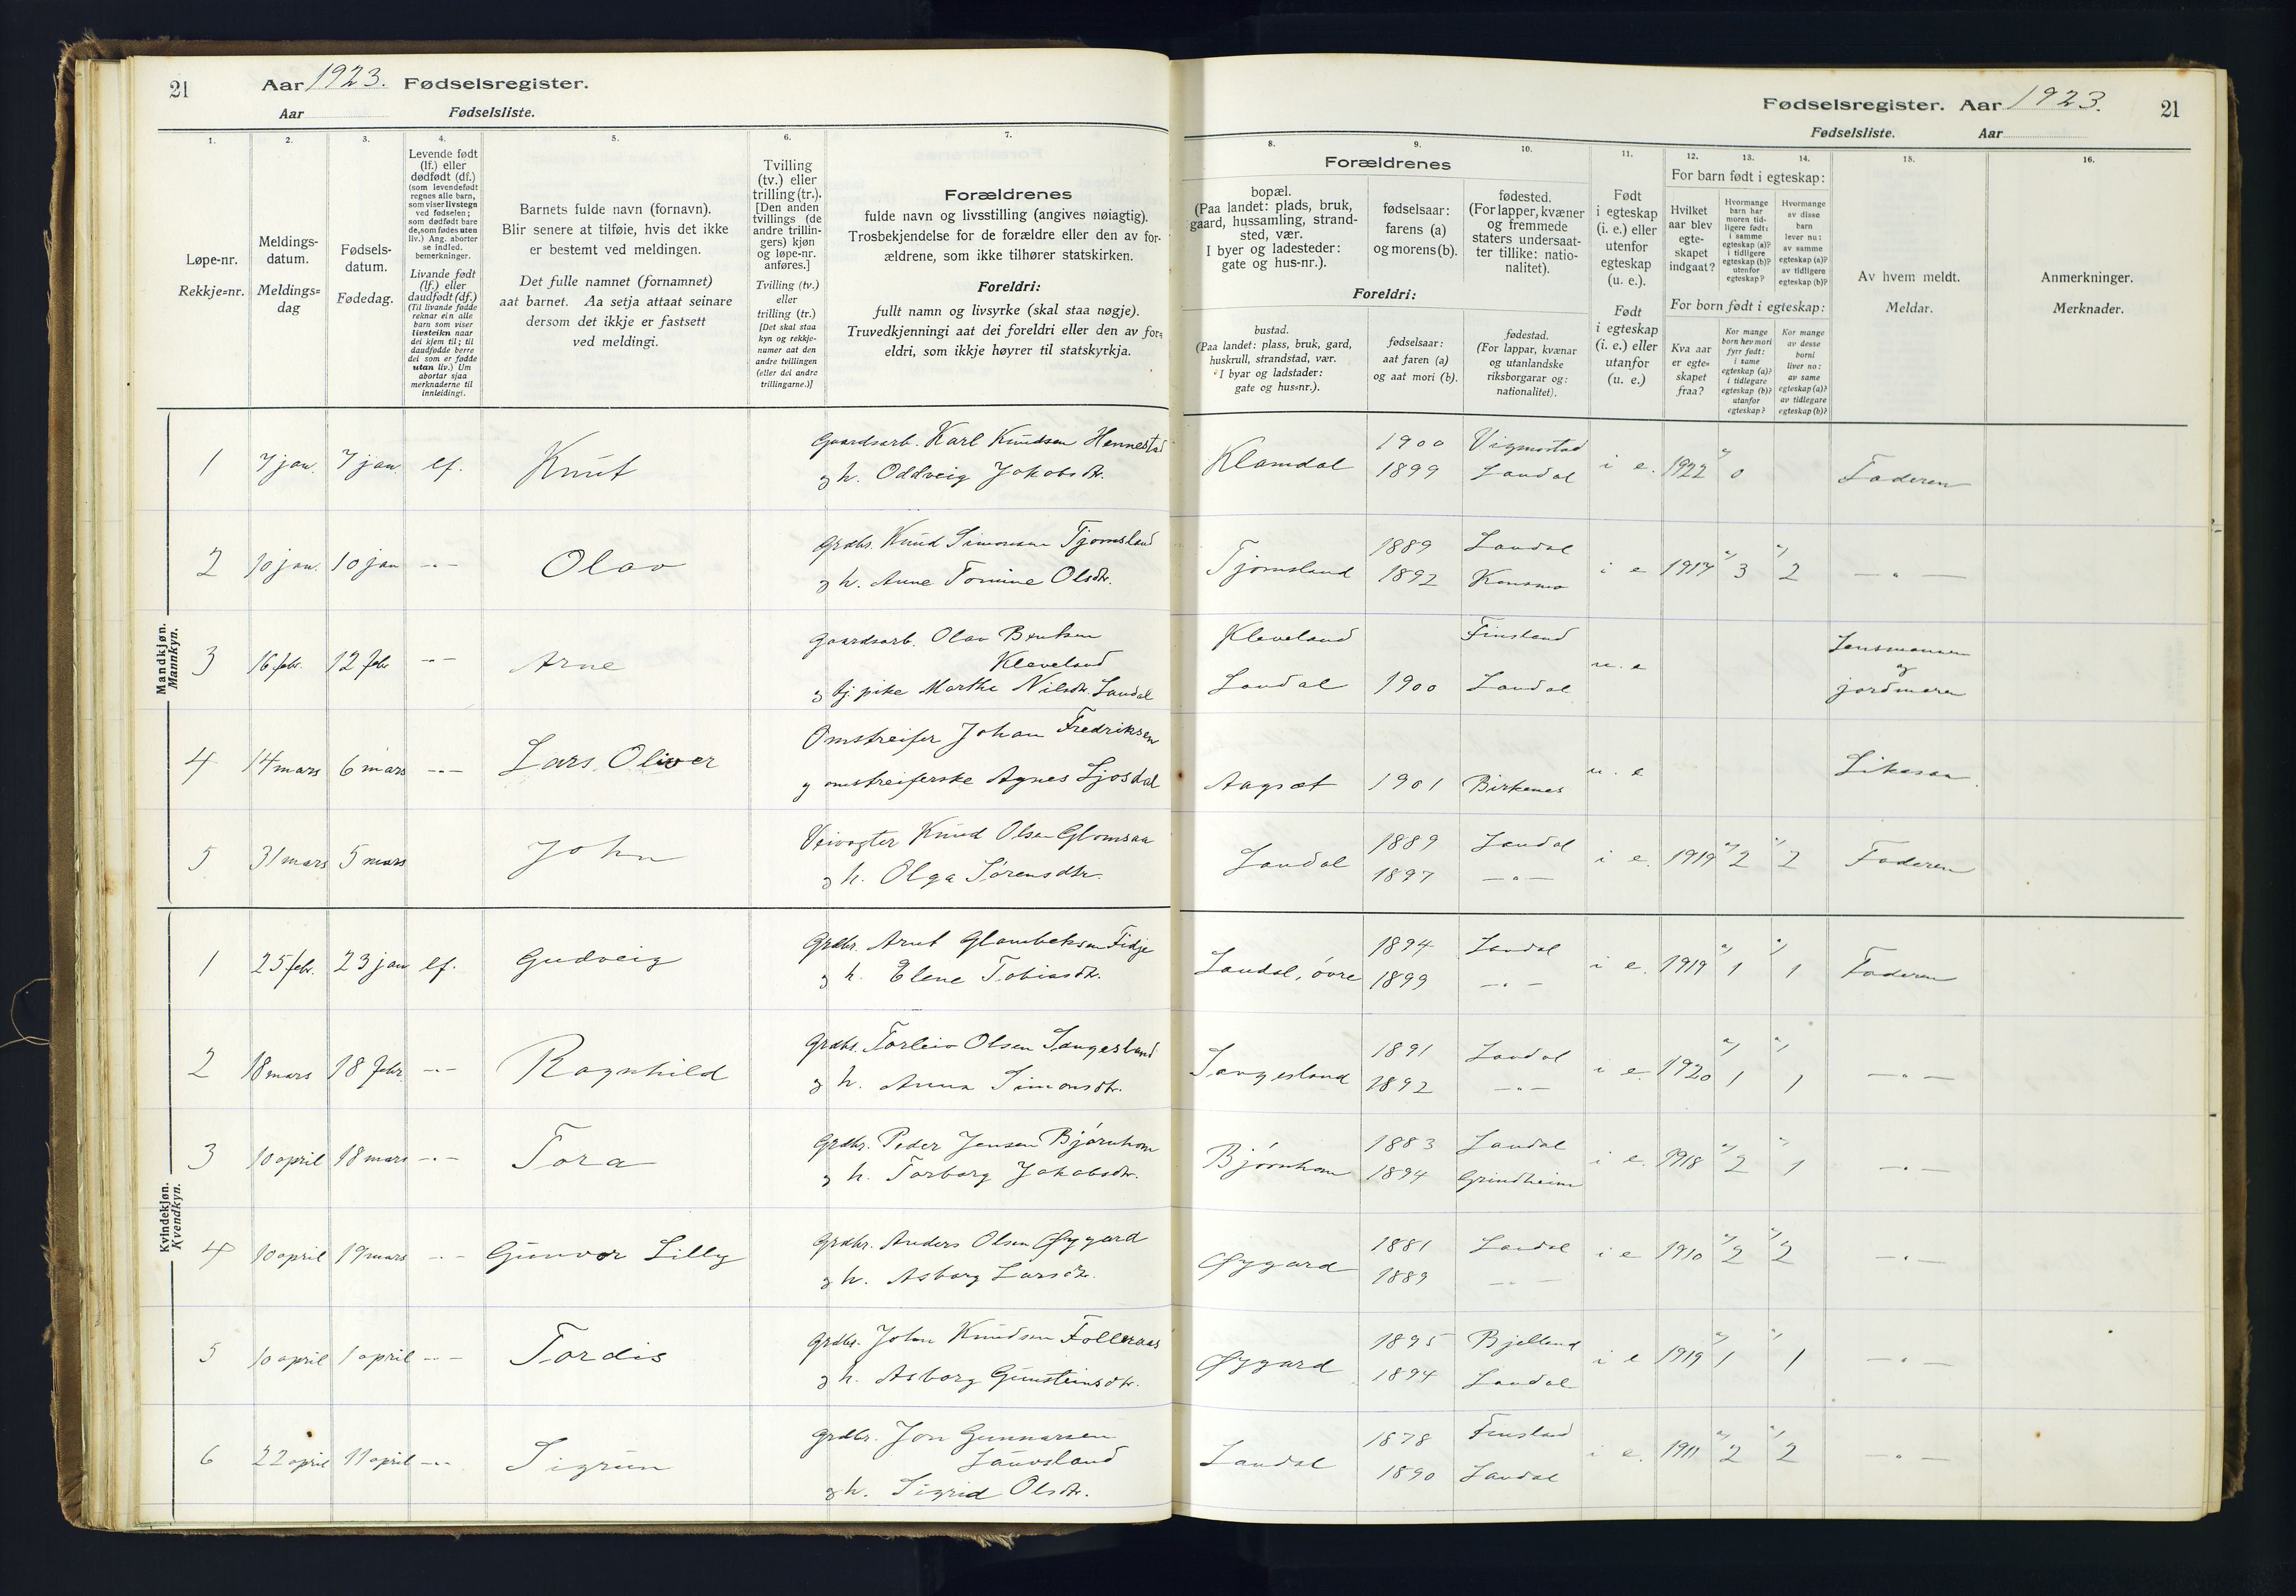 21 Aar 1923. Fødselsregister.
Aar Fødselsliste.
Fødselsregister. Aar 1923. 21
Fødselsliste. Aar
1.
Løpe-nr.
Rekkje=nr.
2.
Meldings-
datum.
Meldings=
dag
3.
Fødsels-
datum.
Fødedag.
4.
Levende født
(lf.) eller
dødfødt (df.)
(som levendefødt
regnes alle barn,
som viser livstegn
ved fødselen;
som dødfødt bare
de, som fødes uten
liv.) Ang. aborter
se indled.
bemerkninger.
Livande født
(lf.) eller
daudfødt (df.)
(Til livande fødde
reknar ein alle
barn som viser
livsteikn naar
dei kjem til; til
daudfødde berre
dei som er fødde
utan liv.) Um
abortar sjaa
merknaderne til
innleidingi.
5.
Barnets fulde navn (fornavn).
Blir senere at tilføie, hvis det ikke
er bestemt ved meldingen.
Det fulle namnet (fornamnet)
aat barnet. Aa setja attaat seinare
dersom det ikkje er fastsett
ved meldingi.
6.
Tvilling
(tv.) eller
trilling (tr.).
[Den anden
tvillings (de
andre trillin-
gers) kjøn
og løpe-nr.
anføres.]
Tvilling (tv.)
eller
trilling (tr.)
[Det skal staa
kyn og rekkje-
numer aat den
andre tvillingen
(eller dei andre
trillingarne.)]
7.
Forældrenes
fulde navn og livsstilling (angives nøiagtig).
Trosbekjendelse for de forældre eller den av for-
ældrene, som ikke tilhører statskirken.
Foreldri:
fullt namn og livsyrke (skal staa nøgje).
Truvedkjenningi aat dei foreldri eller den av for=
eldri, som ikkje høyrer til statskyrkja.
Forældrenes
8.
bopæl.
(Paa landet: plads, bruk,
gaard, hussamling, strand-
sted, vær.
I byer og ladesteder:
gate og hus-nr.).
9.
fødselsaar:
farens (a)
og morens (b).
10.
fødested.
(For lapper, kvæner
og fremmede
staters undersaat-
ter tillike: natio-
nalitet).
Foreldri:
bustad.
(Paa landet: plass, bruk, gard,
huskrull, strandstad, vær.
I byar og ladstader:
gate og hus=nr.).
fødselsaar:
aat faren (a)
og aat mori (b).
fødestad.
(For lappar, kvænar
og utanlandske
riksborgarar og:
nationalitet).
11.
Født
i egteskap
(i. e.) eller
utenfor
egteskap
(u. e.).
Født
i egteskap
(i. e.) eller
utanfor
(u. e.)
12. 13. 14.
For barn født i egteskap:
Hvilket
aar blev
egte-
skapet
indgaat?
Hvormange
barn har
moren tid-
ligere født:
i samme
egteskap (a)?
i tidligere
egteskap (b)?
utenfor
egteskap?
Hvormange
av disse
barn
lever nu:
av samme
egteskap (a)?
av tidligere
egteskap (b)?
For born født i egteskap:
Kva aar
er egte=
skapet
fraa?
Kor mange
born hev mori
fyrr født:
i same
egteskap (a)?
i tidlegare
egteskap (b)?
utanfor
egteskap?
Kor mange
av desse
borni
liver no:
av same
egteskap (a)?
av tidlegare
egteskap (b)?
15.
Av hvem meldt.
Meldar.
16.
Anmerkninger.
Merknader.
Mandkjøn.
Mannkyn.
1 7 jan. 7 jan. lf. Knut Gaardsarb. Karl Knudsen Hennestad
g h. Oddveig Jakobsdtr.
Klamdal 1900 Vigmostad
1899 Laudal i e. 1922 a/ 0 Faderen
2 10 jan. 10 jan -"- Olav Grdbr. Knud Simonsen Tjomsland
g h. Anne Tomine Olsdtr.
Tjomsland 1889 Laudal
1892 Konsmo i e 1917 a/ 3 a/ 2 -"-
3 16 febr. 12 febr -"- Arne Gaardsarb. Olav Bentsen
Kleveland
g tj. pike Marthe Nilsdtr. Laudal
Kleveland Finsland
Laudal 1900 Laudal u. e Lensmannen
og
jordmoren
4 14 mars 6 mars -"- Lars Oliver Omstreifer Johan Fredriksen
g omstreiferske Agnes Ljosdal
Aagsæt 1901 Birkenes u. e
5 31 mars 5 mars John Veivogter Knud Olsen Glomsaa
g h. Olga Sørensdtr.
Laudal 1889 Laudal
1897 -"- i e. 1919 a/ 2 a/ 2 Faderen
Kvindekjøn.
Kvendkyn.
1 25 febr. 23 jan lf. Gudveig Grdbr. Arnt Glambeksen Fidje
g h. Elene Tobiasdtr.
Laudal, øvre 1894 Laudal
1899 -"- i e. 1919 a/ 1 a/ 1 Faderen
2 18 mars 18 febr. -"- Ragnhild Grdbr. Torleiv Olsen Sangesland
g h. Anna Simonsdtr.
Sangesland 1891 Laudal
1892 -"- i e. 1920 a/ 1 a/ 1 -"-
3 10 april 18 mars -"- Tora Grdbr. Peder Jensen Bjørnhom
g h. Torborg Jakobsdtr.
Bjørnhom 1883 Laudal
1894 Grindheim i e. 1918 a/ 2 a/ 1 -"-
4 10 april 19 mars -"- Gunvor Lilly Grdbr. Anders Olsen Øygard
g h. Asborg Larsdtr.
Øygard 1881 Laudal
1889 -"- i e 1910 a/ 2 a/ 2 -"-
5 10 april 1 april -"- Tordis Grdbr. John Knudsen Folleraas
g h. Asborg Gunsteinsdtr.
Øygard 1895 Bjelland
1894 Laudal i e 1919 a/ 1 a/ 1 -"-
6 22 april 11 april -"- Sigrun Grdbr. Jon Gunnarsen
Lauvsland
g h. Sigrid Olsdtr.
Laudal 1878 Finsland
1890 Laudal i e. 1911 a/ 2 a/ 2 -"-